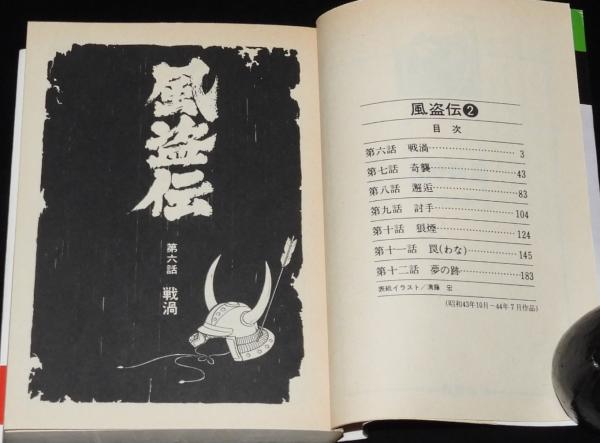 風盗伝❷
目次
第六話 戦渦…………………………3
第七話 奇襲…………………………43
第八話 邂逅…………………………83
第九話 討手…………………………104
第十話 狼煙…………………………124
第十一話 罠(わな)…………………145
第十二話 夢の跡……………………183
表紙イラスト/濱藤 宏
(昭和43年10月−44年7月作品)
風盗伝
第六話
戦渦